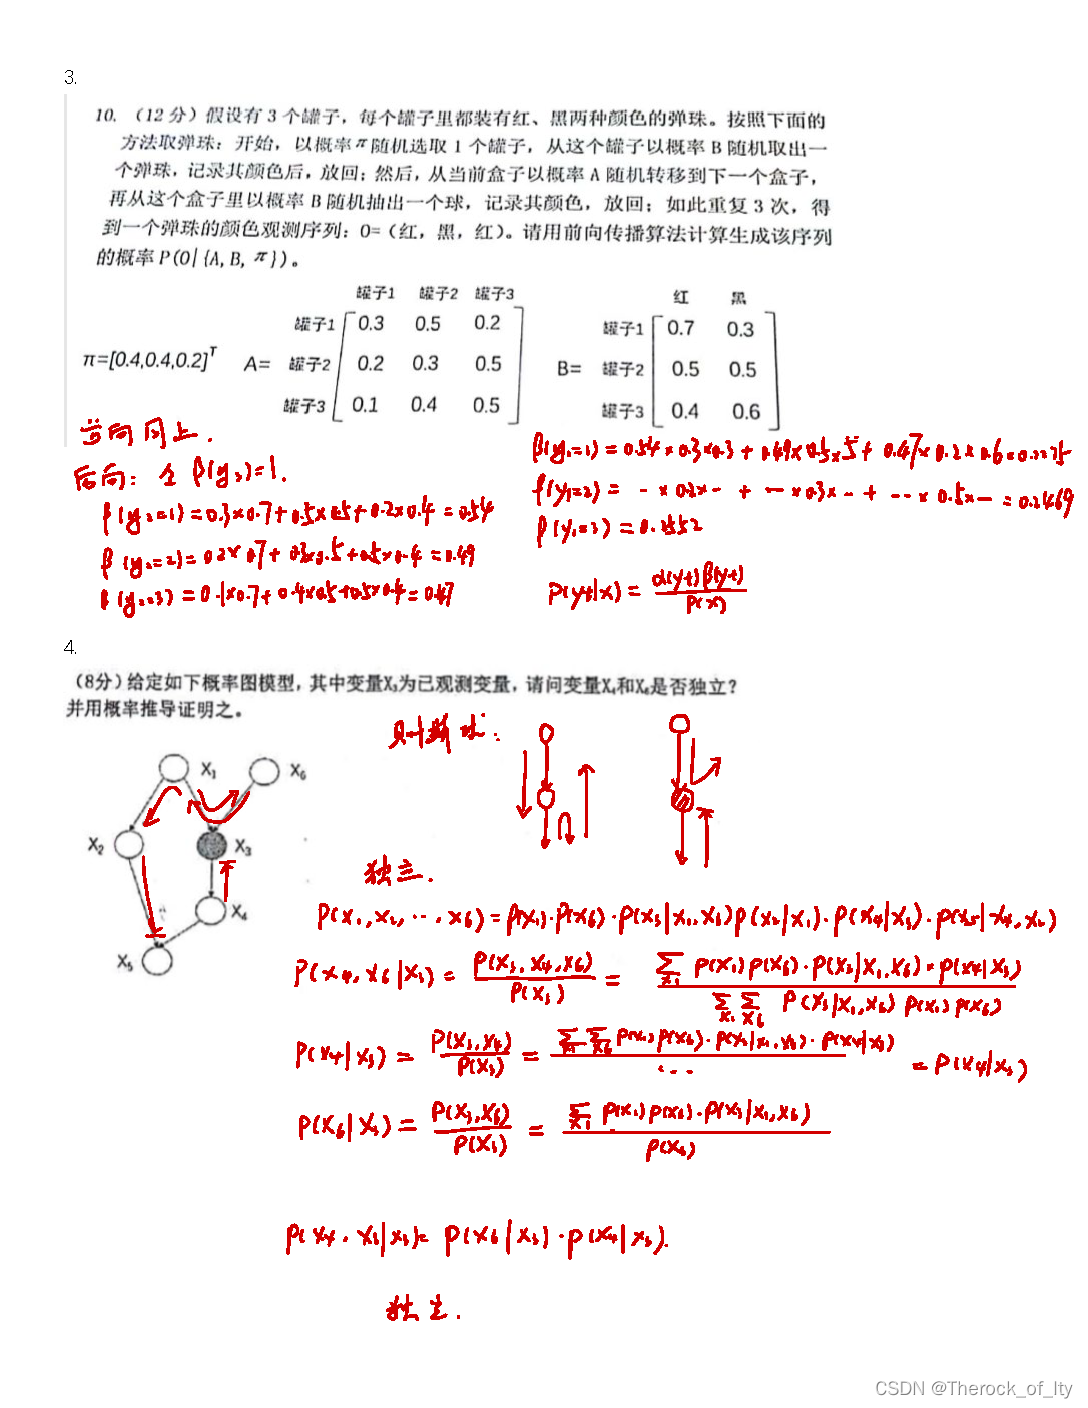 3.
10. （12 分）假设有 3 个罐子，每个罐子里都装有红、黑两种颜色的弹珠。按照下面的
方法取弹珠：开始，以概率π随机选取 1 个罐子，从这个罐子以概率 B 随机取出一
个弹珠，记录其颜色后，放回；然后，从当前盒子以概率 A 随机转移到下一个盒子，
再从这个盒子里以概率 B 随机抽出一个球，记录其颜色，放回；如此重复 3 次，得
到一个弹珠的颜色观测序列：O=（红，黑，红）。请用前向传播算法计算生成该序列
的概率 P(O|{A, B, π})。
罐子1 罐子2 罐子3 红 黑
罐子1 0.3 0.5 0.2 罐子1 0.7 0.3
π=[0.4,0.4,0.2]ᵀ A= 罐子2 0.2 0.3 0.5 B= 罐子2 0.5 0.5
罐子3 0.1 0.4 0.5 罐子3 0.4 0.6
前向同上.
后向: 全 β(y₃)=1.
β(y₂=1)=0.3×0.7+0.5×0.5+0.2×0.4=0.54
β(y₂=2)=0.2×0.7+0.3×0.5+0.5×0.4=0.49
β(y₂=3)=0.1×0.7+0.4×0.5+0.5×0.4=0.47
β(y₁=1)=0.54×0.3×0.3+0.49×0.5×5+0.47×0.2×0.6=0.2275
β(y₁=2)= -×0.2×- + -×0.3×- + --×0.5×- =0.2469
β(y₁=3)=0.2552
P(yt|x)= α(yt)β(yt) / P(x)
4.
（8分）给定如下概率图模型，其中变量X₃为已观测变量，请问变量X₄和X₆是否独立？
并用概率推导证明之。
X₁ X₆
X₂ X₃
X₄
X₅
独立.
P(x₁,x₂,···x₆)=P(x₁)·P(x₆)·P(x₃|x₁,x₆)P(x₂|x₁)·P(x₄|x₃)·P(x₅|x₄,x₂)
P(x₄,x₆|x₃)= P(x₃,x₄,x₆) / P(x₃) = ∑x₁ P(x₁)P(x₆)·P(x₃|x₁,x₆)·P(x₄|x₃) / ∑x₁ ∑x₆ P(x₃|x₁,x₆)P(x₁)P(x₆)
P(x₄|x₃)= P(x₃,x₄) / P(x₃) = ∑x₁ ∑x₆ P(x₁)P(x₆)·P(x₃|x₁,x₆)·P(x₄|x₃) / ... =P(x₄|x₃)
P(x₆|x₃)= P(x₃,x₆) / P(x₃) = ∑x₁ P(x₁)P(x₆)·P(x₃|x₁,x₆) / P(x₃)
P(x₄,x₆|x₃)= P(x₆|x₃)·P(x₄|x₃).
独立.
CSDN @Therock_of_lty